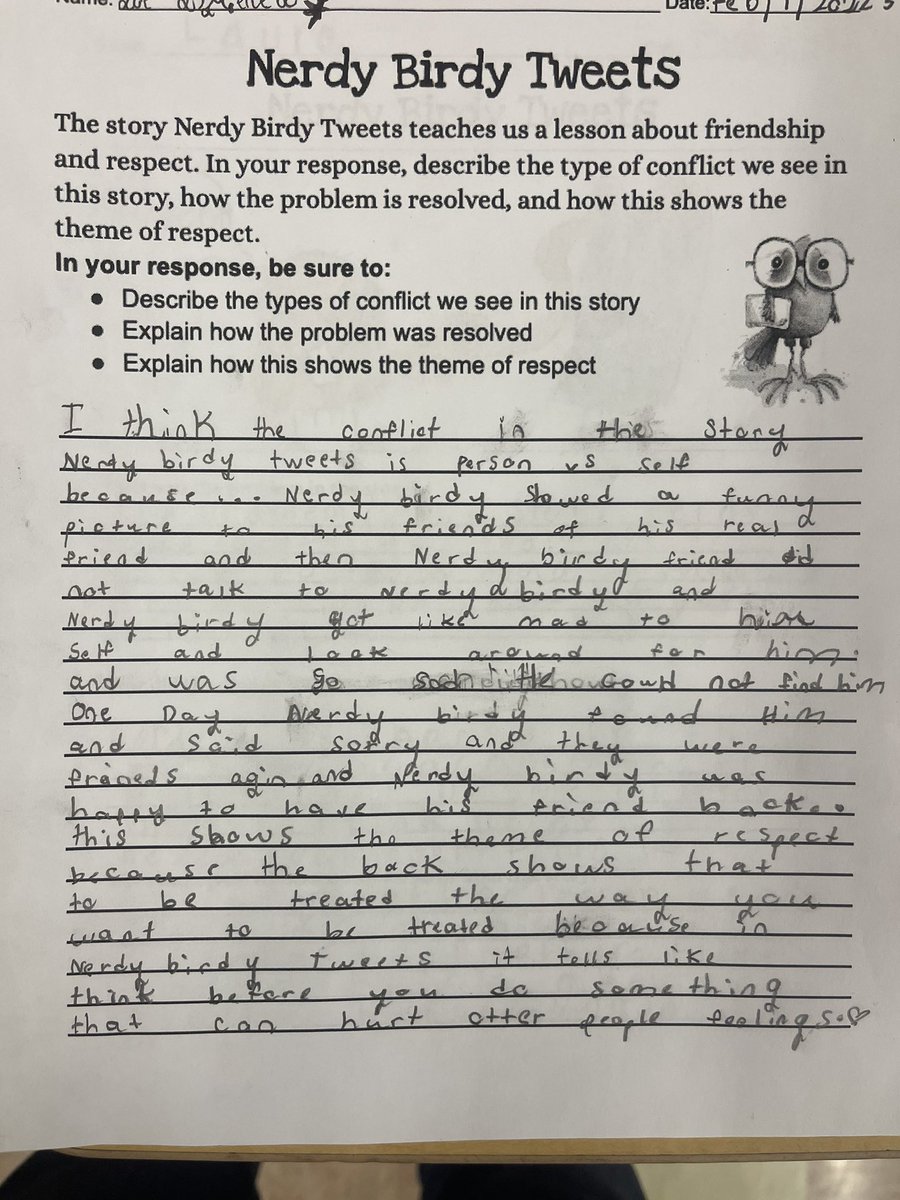 Date: Feb/1/
Nerdy Birdy Tweets
The story Nerdy Birdy Tweets teaches us a lesson about friendship
and respect. In your response, describe the type of conflict we see in
this story, how the problem is resolved, and how this shows the
theme of respect.
In your response, be sure to:
• Describe the types of conflict we see in this story
• Explain how the problem was resolved
• Explain how this shows the theme of respect
I think the conflict in the Story
Nerdy birdy tweets is person vs self
because... Nerdy birdy Showed a funny
picture to his friends of his real
friend and then Nerdy birdy friend did
not talk to nerdy birdy and
Nerdy birdy got like mad to him
Self and look around for him.
and was go not find him
One Day Nerdy birdy found Him
and Said sorry and they were
frineds agin and Nerdy birdy was
happy to have his friend back.
this Shows the theme of respect
because the back shows that
to be treated the way you
want to be treated because in
Nerdy birdy tweets it tells like
think before you do something
that can hurt otter people feelings.